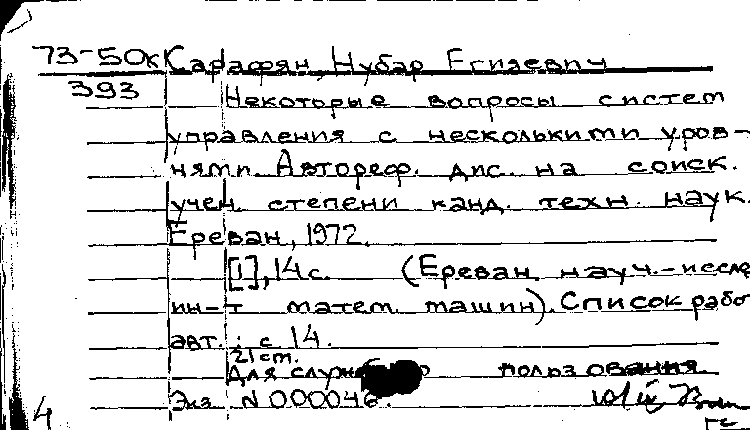 73-50к Карафян, Нубар Егияевич
393 Некоторые вопросы систем
управления с несколькими уров-
нями. Автореф. дис. на соиск.
учен. степени канд. техн. наук.
Ереван, 1972.
[1], 14 с. (Ереван. науч.-иссле
ин-т матем. машин). Список рабо
авт.: с 14.
21 см.
Для пользования
Экз. N 000046.
4